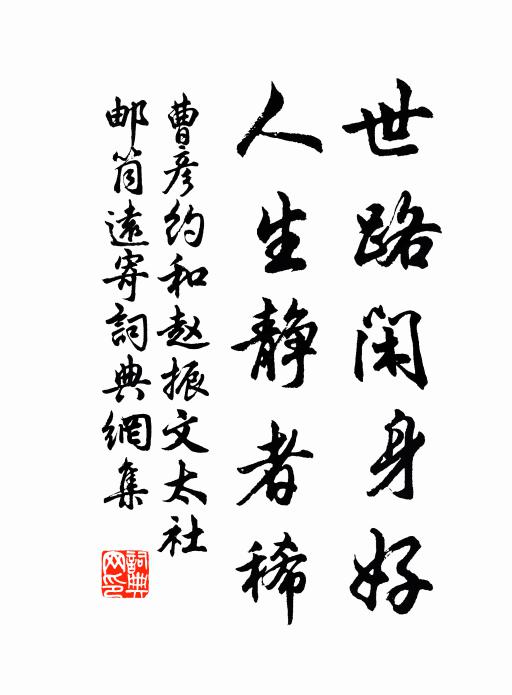 世路闲身好
人生静者稀
曹彦约和赵振文太社
邮筒遠寄詞典網集
詞典
网印